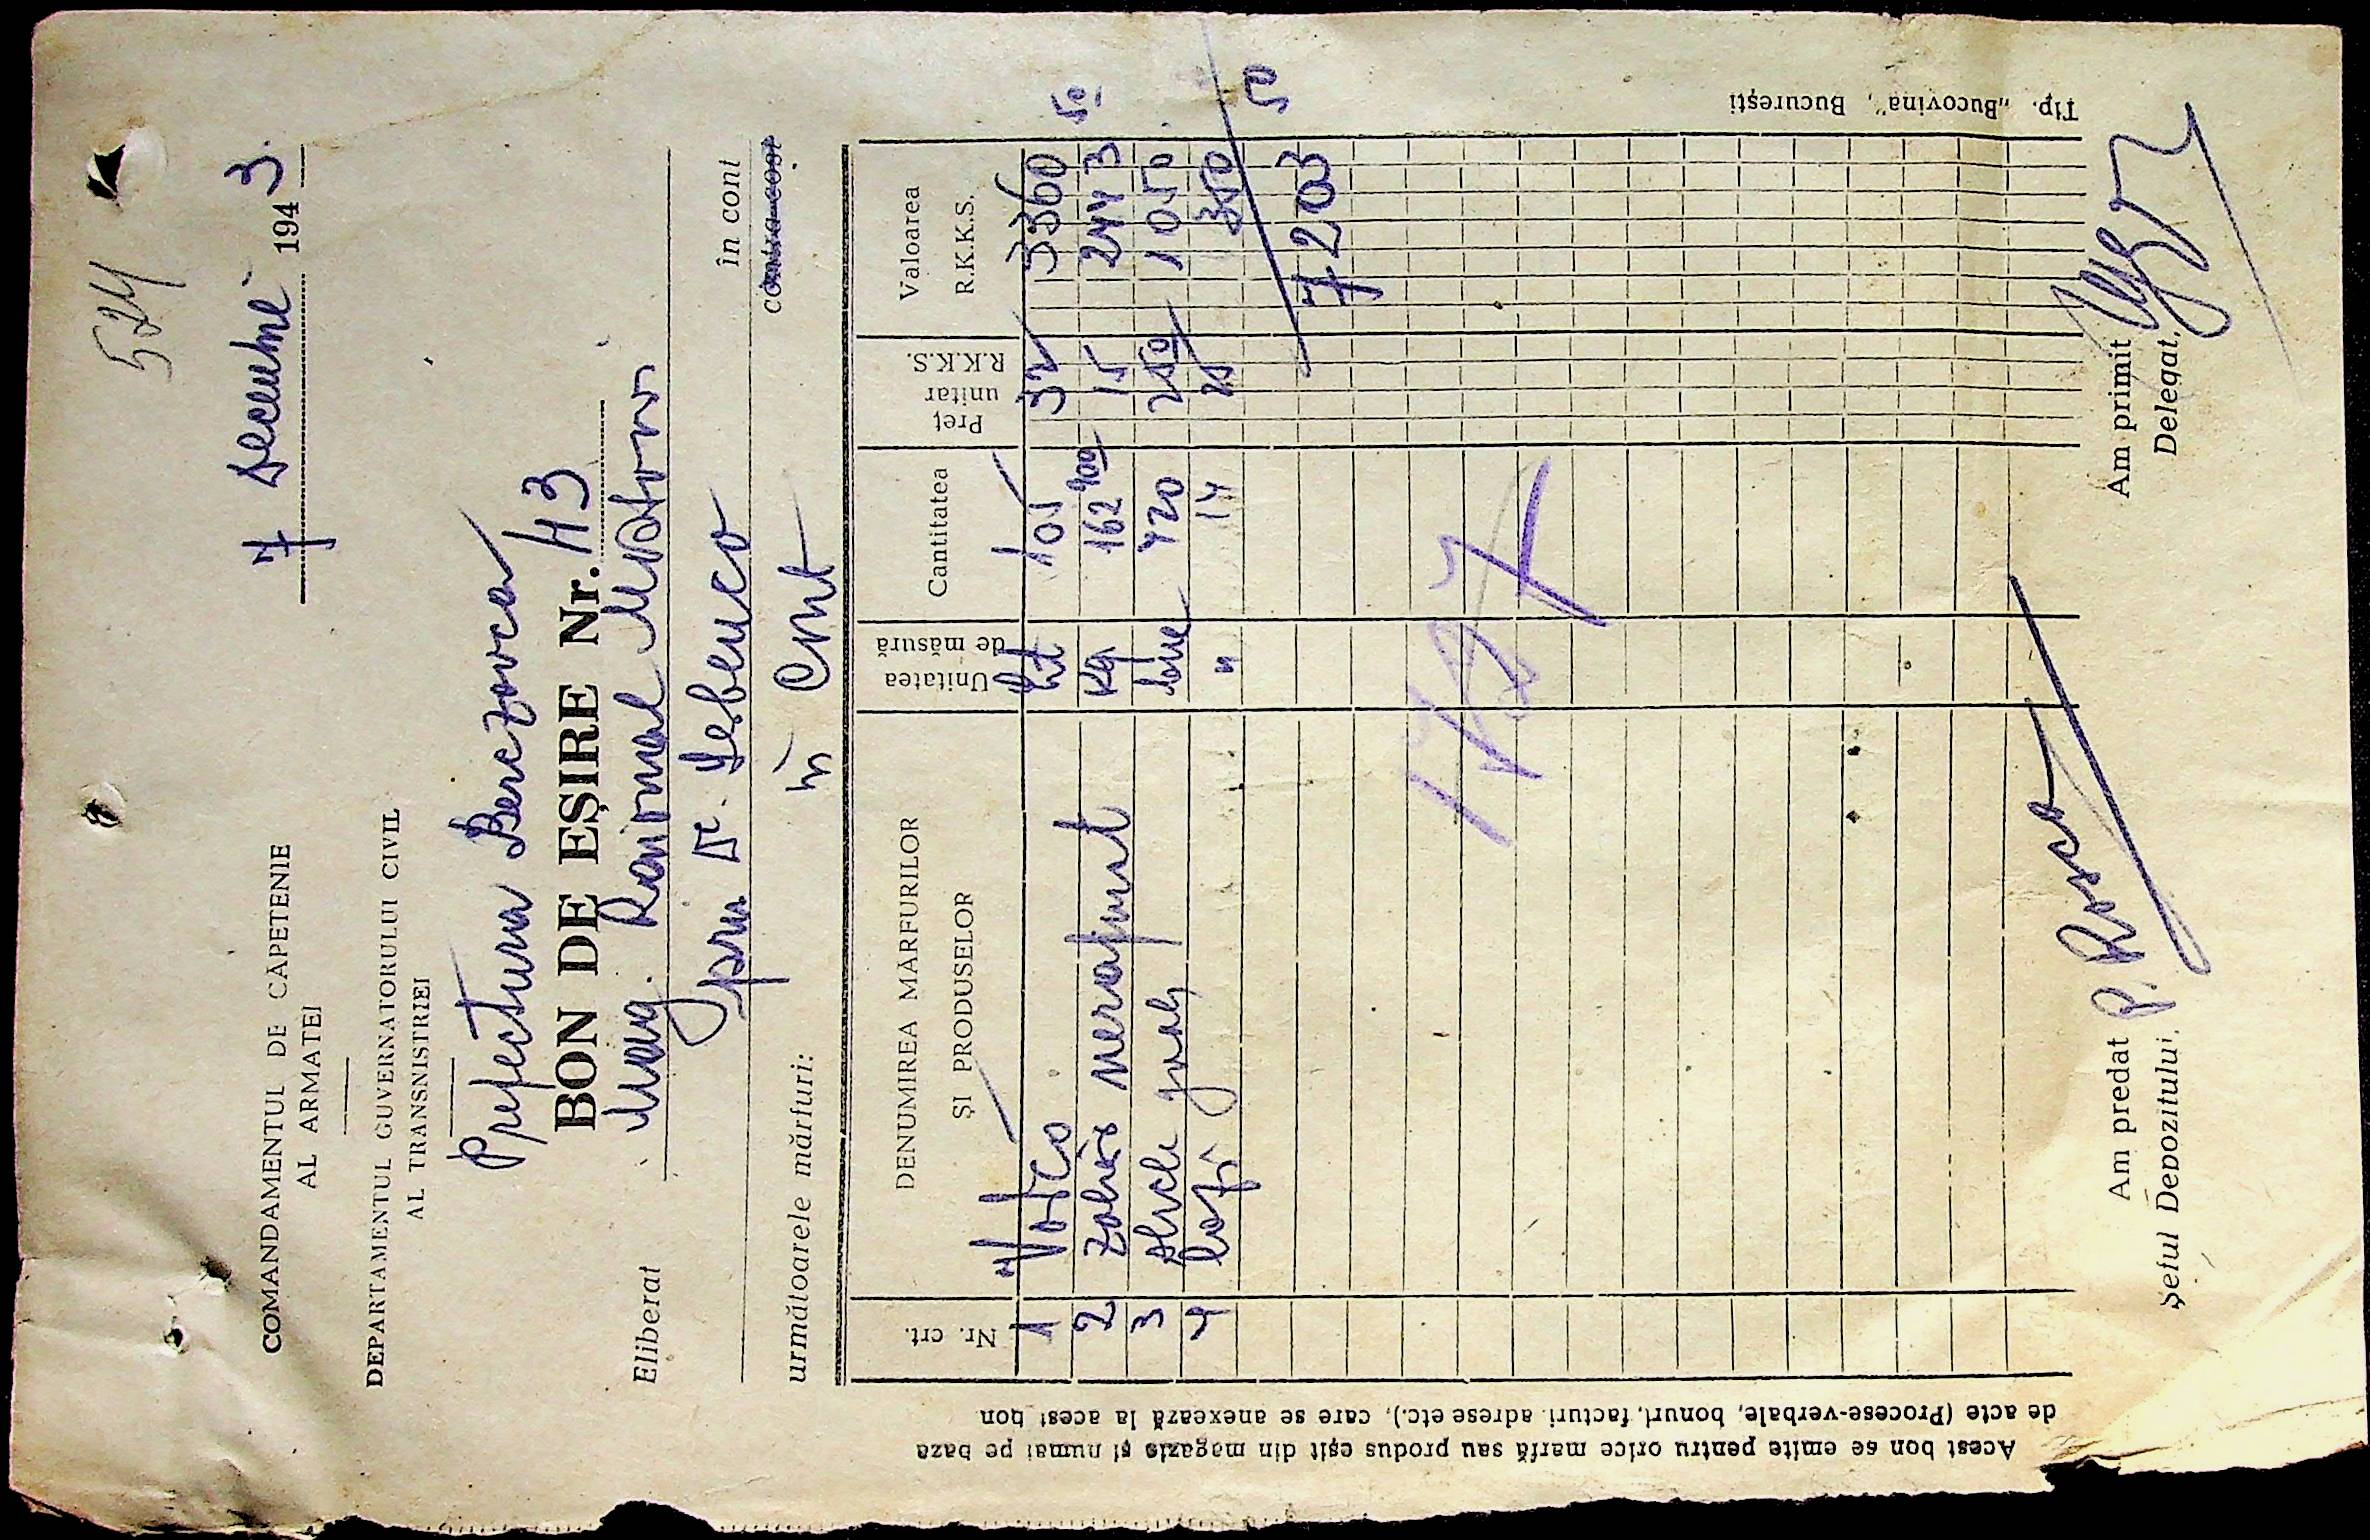 524
7 Decemvrie 1943
COMANDAMENTUL DE CĂPETENIE
AL ARMATEI
DEPARTAMENTUL GUVERNATORULUI CIVIL
AL TRANSNISTRIEI
Prefectura Berezovca
BON DE EȘIRE Nr. 43
Eliberat Mag. Raional Mostovoi
prin Dr. în cont
în Cont contra cost
următoarele mărfuri:
Nr. crt. DENUMIREA MĂRFURILOR ȘI PRODUSELOR Unitatea de măsură Cantitatea Preț unitar R.K.K.S. Valoarea R.K.K.S.
1 Votco lit 105 32 3360
2 Zahăr Kg 162 900 15 2443 50
3 420 250 1050
4 " 14 25 350
7203 5
Am predat
Șeful Depozitului,
P. Rosca
Am primit
Delegat,
Acest bon se emite pentru orice marfă sau produs eșit din magazie și numai pe baza
de acte (Procese-verbale, bonuri, facturi, adrese etc.), care se anexează la acest bon
Tip. „Bucovina", București